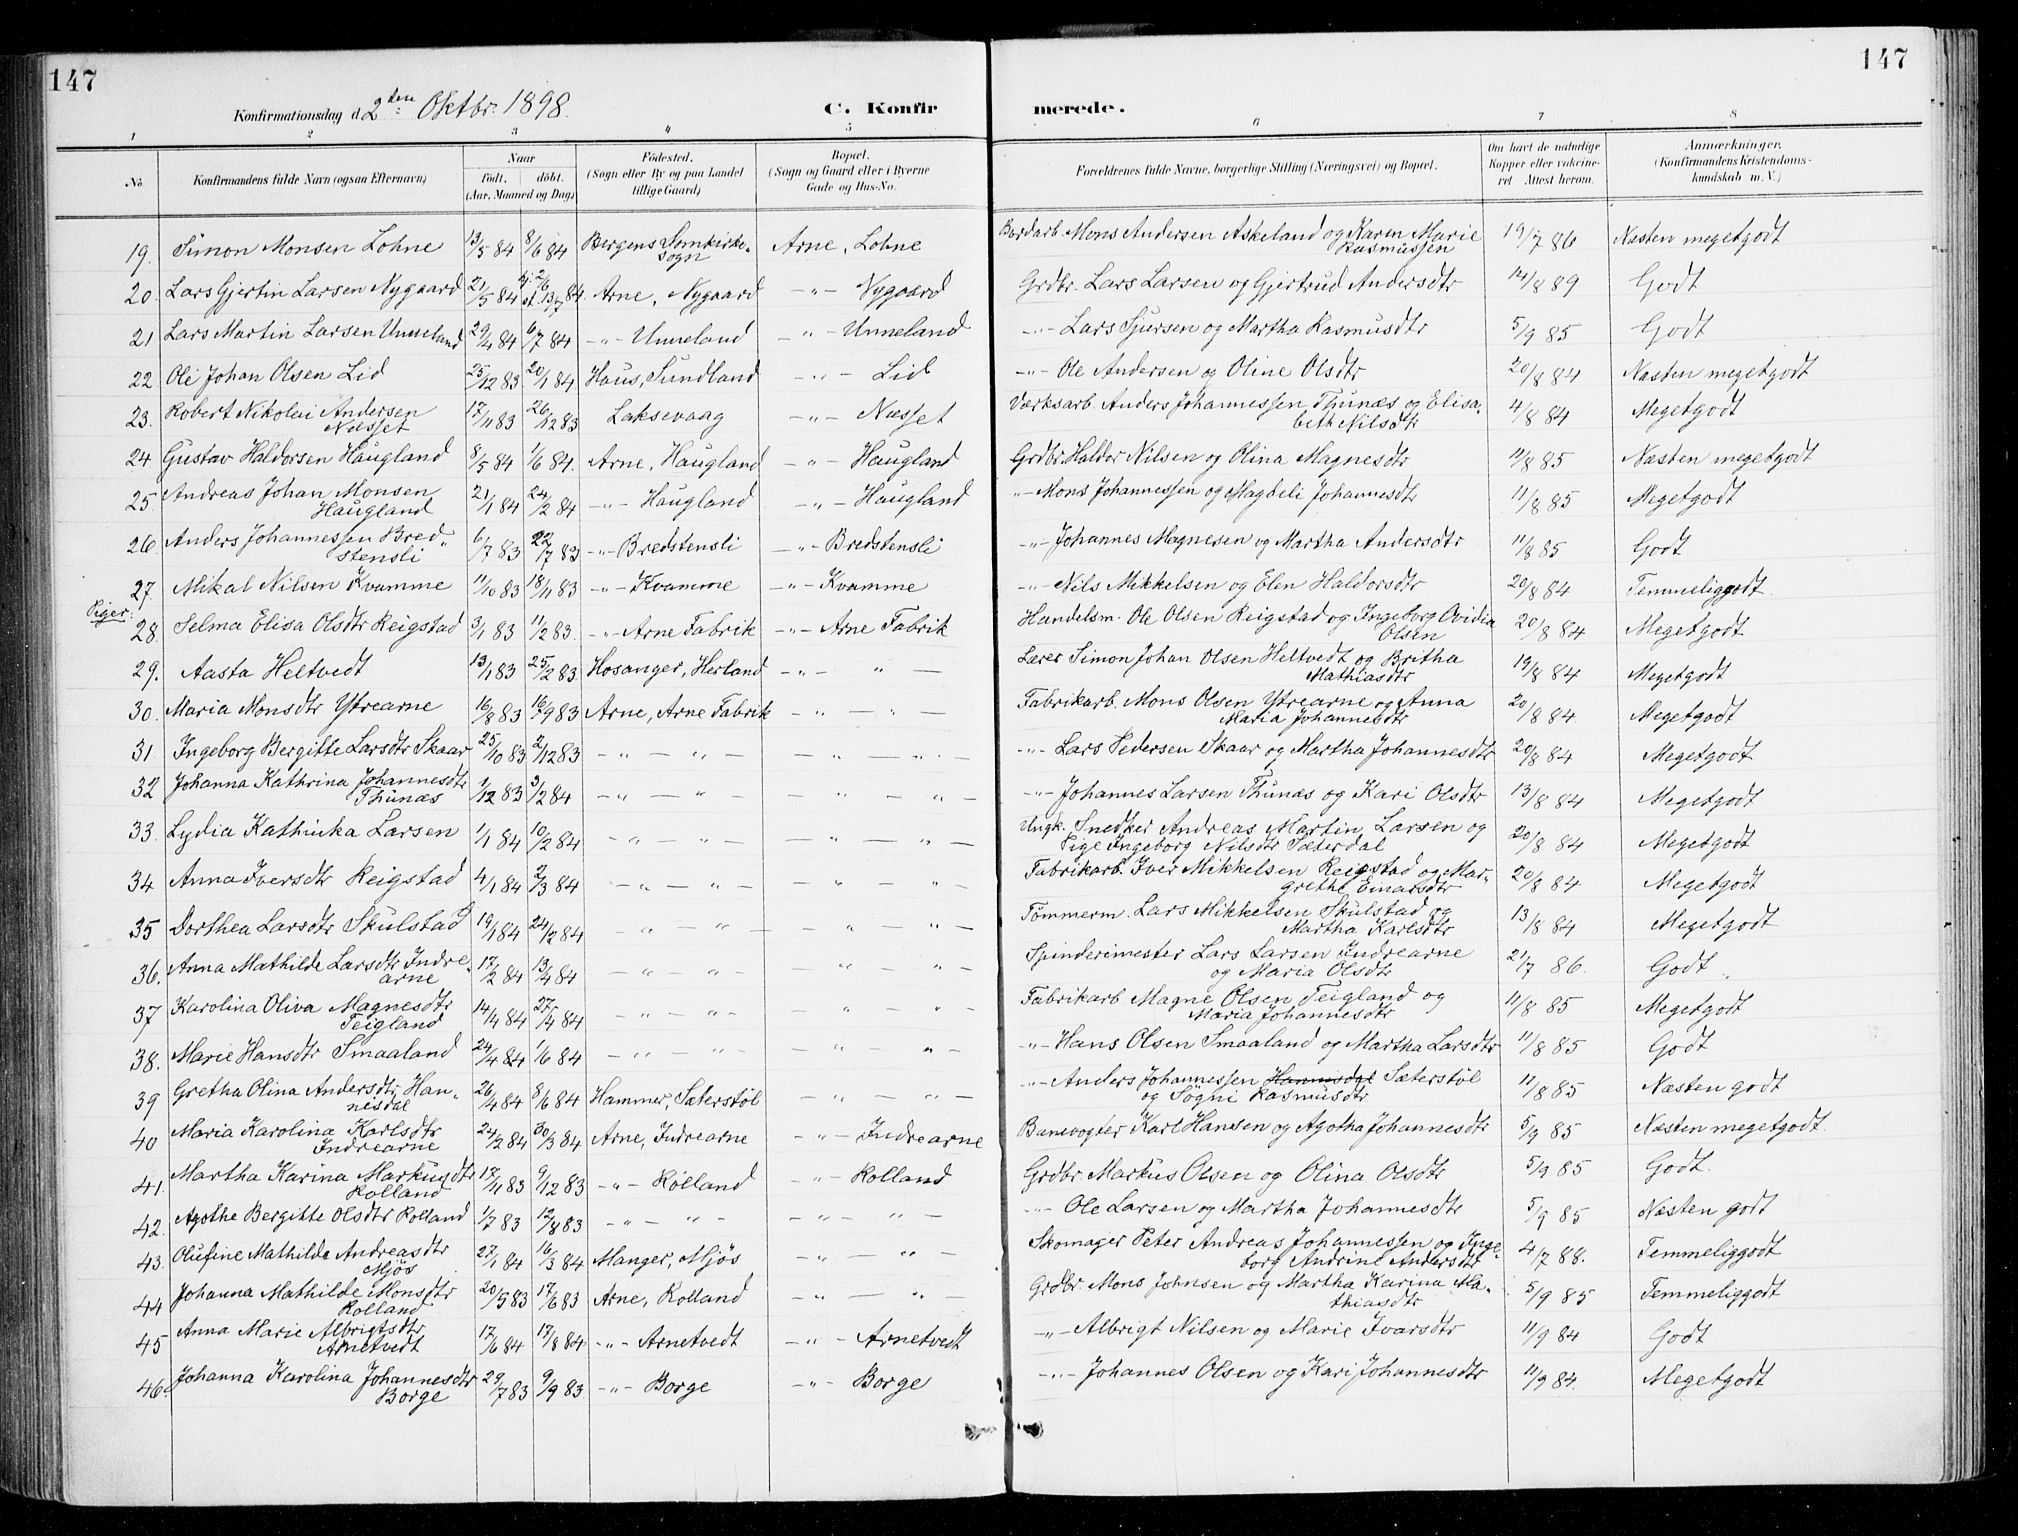 147
147
Konfirmationsdag d. 2den Oktbr. 1898.
C. Konfirmerede.
1 2 3 4 5 6 7 8
No
Konfirmandens fulde Navn (ogsaa Efternavn)
Naar
födt. döbt.
(Aar, Maaned og Dag)
Födested.
(Sogn eller By og paa Landet tillige Gaard)
Bopæl.
(Sogn og Gaard eller i Byerne Gade og Hus-No.
Forældrenes fulde Navne, borgerlige Stilling (Næringsvei) og Bopæl.
Om havt de naturlige Kopper eller vakcineret. Attest herom.
Anmærkninger.
(Konfirmandens Kristendomskundskab m. V.)
19. Simon Monsen Lohne 13/5 84 8/6 84 Bergens Domkirkesogn Arne, Lohne Bordarb. Mons Andersen Askeland og Karen Marie Rasmussen 19/7 86 Næsten megetgodt
20. Lars Gjertin Larsen Nygaard 21/5 84 Arne, Nygaard -"- Nygaard Grdbr. Lars Larsen og Gjertrud Andersdtr 14/8 89 Godt
21 Lars Martin Larsen Unneland 29/4 84 6/7 84 -"- Unneland -"- Unneland -"- Lars Sjursen og Martha Rasmusdtr 5/9 85 Godt
22 Ole Johan Olsen Lid 25/12 83 20/1 84 Haus, Sundland -"- Lid -"- Ole Andersen og Oline Olsdtr 20/8 84 Næsten megetgodt
23. Robert Nikolai Andersen Næsset 17/11 83 26/12 83 Laksevaag -"- Næsset Værksarb. Anders Johannessen Thunæs og Elisabeth Nilsdtr 4/8 84 Megetgodt
24 Gustav Haldorsen Haugland 8/5 84 1/6 84. Arne, Haugland -"- Haugland Grdbr. Haldor Nilsen og Olina Magnesdtr 11/8 85 Næsten megetgodt
25 Andreas Johan Monsen Haugland 21/1 84 24/2 84 -"- Haugland -"- Haugland "- Mons Johannessen og Magdeli Johannesdtr 11/8 85 Megetgodt
26 Anders Johannessen Bredstensli 6/7 83 22/7 83 -"- Bredstensli -"- Bredstensli -"- Johannes Magnesen og Martha Andersdtr 11/8 85 Godt
27. Mikal Nilsen Kvamme 11/10 83 18/11 83 -"- Kvamme -"- Kvamme -"- Nils Mikkelsen og Elen Haldorsdtr 20/8 84 Temmeliggodt.
Piger:
28. Selma Elisa Olsdtr Reigstad 3/1 83 11/2 83. -"- Arne Fabrik -"- Arne Fabrik Handelsm. Ole Olsen Reigstad og Ingeborg Ovidia Olsen 20/8 84 Megetgodt
29. Aasta Heltvedt 13/1 83 25/2 83 Hosanger, Herland -"- " - Lærer Simon Johan Olsen Heltvedt og Britha Mathiasdtr 13/8 84 Megetgodt
30. Maria Monsdtr Ytrearne 16/8 83 16/9 83 Arne, Arne Fabrik -"- " - Fabrikarb. Mons Olsen Ytrearne og Anna Maria Johannesdtr 20/8 84 Megetgodt
31 Ingeborg Bergitte Larsdtr Skaar 25/10 83 2/12 83 -"- " - -"- " - -"- Lars Pedersen Skaar og Martha Johannesdtr 20/8 84 Megetgodt
32 Johanna Kathrina Johannesdtr Thunæs 1/12 83 3/2 84 -"- " - - " - " - -"- Johannes Larsen Thunæs og Kari Olsdtr 13/8 84 Megetgodt
33. Lydia Kathinka Larsen 1/1 84 10/2 84 -"- " - - " - " - Ungk. Snedker Andreas Martin Larsen og Pige Ingeborg Nilsdtr Sæterdal 20/8 84 Megetgodt
34 Anna Iversdtr Reigstad 4/1 84 2/3 84 -"- " - - " - " - Fabrikarb. Iver Mikkelsen Reigstad og Margrethe Einarsdtr 20/8 84 Megetgodt
35 Dorthea Larsdtr Skulstad 19/1 84 24/2 84 -"- " - - " - " - Tömmerm. Lars Mikkelsen Skulstad og Martha Karlsdtr 13/8 84 Megetgodt
36. Anna Mathilde Larsdtr Indrearne 17/2 84 13/4 84 -"- " - - " - " - Spinderimester Lars Larsen Indrearne og Maria Olsdtr 21/7 86. Godt
37 Karolina Oliva Magnesdtr Teigland 14/4 84 27/4 84 -"- " - - " - " - Fabrikarb Magne Olsen Teigland og Maria Johannesdtr 11/8 85 Megetgodt
38. Marie Hansdtr Smaaland 24/4 84 1/6 84 -"- " - - " - " - "- Hans Olsen Smaaland og Martha Larsdtr 11/8 85 Godt
39 Gretha Olina Andersdtr Hannisdal 26/4 84 8/6 84 Hammer, Sæterstöl - " - " - -"- Anders Johannessen Hannisdal Sæterstöl og Sögni Rasmusdtr 11/8 85 Næsten godt
40 Maria Karolina Karlsdtr Indrearne 24/2 84 30/3 84 Arne, Indrearne -"- Indrearne Banevogter Karl Hansen og Agotha Johannesdtr 5/9 85 Næsten megetgodt.
41. Martha Karina Markusdtr Rolland 17/11 83 9/12 83 -"- Rolland -"- Rolland Grdbr. Markus Olsen og Olina Olsdtr 5/9 85 Godt.
42. Agothe Bergitte Olsdtr Rolland 1/7 83 12/8 83 -"- " - -"- " - -"- Ole Larsen og Martha Johannesdtr 5/9 85 Næsten godt
43. Olufine Mathilde Andreasdtr Mjös 27/1 84 16/3 84 Manger, Mjös -"- " - Skomager Peter Andreas Johannessen og Ingeborg Andrine Andersdtr 4/7 88. Temmeliggodt
44 Johanna Mathilde Monsdtr Rolland 20/5 83 17/6 83 Arne, Rolland -"- " - Grdbr. Mons Johnsen og Martha Karina Mathiasdtr 5/9 85 Temmeliggodt
45 Anna Marie Albrigtsdtr Arnetvedt 17/6 84 17/8 84 -"- Arnetvedt -"- Arnetvedt -"- Albrigt Nilsen og Marie Ivarsdtr 11/9 84 Godt
46. Johanna Karolina Johannesdtr Borge 29/7 83 9/9 83 -"- Borge -"- Borge -"- Johannes Olsen og Kari Johannesdtr 11/9 84. Megetgodt